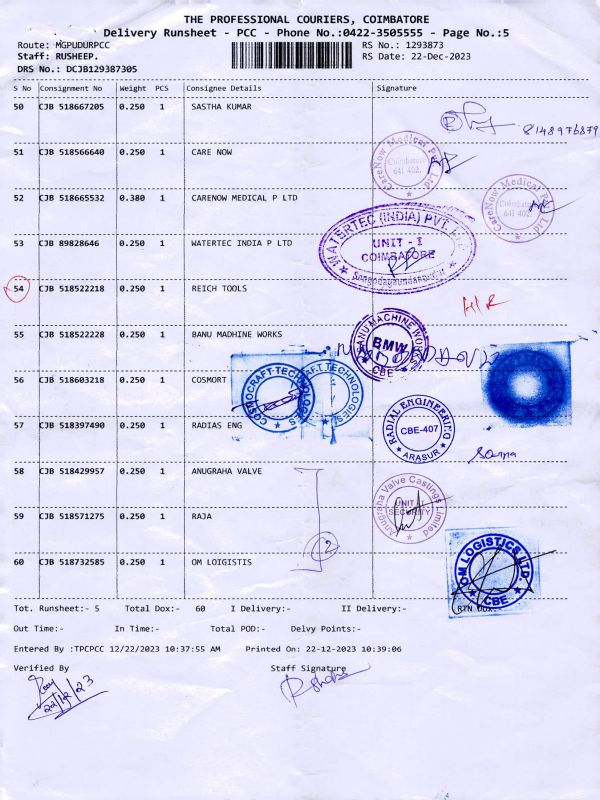 THE PROFESSIONAL COURIERS, COIMBATORE
Delivery Runsheet - PCC - Phone No.:0422-3505555 - Page No.:5
Route: MGPUDURPCC RS No.: 1293873
Staff: RUSHEEP. RS Date: 22-Dec-2023
DRS No.: DCJB129387305
S No Consignment No Weight PCS Consignee Details Signature
50 CJB 518667205 0.250 1 SASTHA KUMAR
8148976879
51 CJB 518566640 0.250 1 CARE NOW
CareNow Medical P Ltd
Coimbatore
641 402.
52 CJB 518665532 0.380 1 CARENOW MEDICAL P LTD
CareNow Medical P Ltd
Coimbatore
641 402.
53 CJB 89828646 0.250 1 WATERTEC INDIA P LTD
WATERTEC (INDIA) PVT. LTD.
UNIT - I
COIMBATORE
54 CJB 518522218 0.250 1 REICH TOOLS
55 CJB 518522228 0.250 1 BANU MADHINE WORKS
BANU MACHINE WORKS
BMW
CBE
56 CJB 518603218 0.250 1 COSMORT
COSMOCRAFT TECHNOLOGIES
57 CJB 518397490 0.250 1 RADIAS ENG
RADIAL ENGINEERING
CBE-407
ARASUR
58 CJB 518429957 0.250 1 ANUGRAHA VALVE
Anugraha Valve Castings Limited
UNIT II
SECURITY
59 CJB 518571275 0.250 1 RAJA
2
60 CJB 518732585 0.250 1 OM LOIGISTIS
OM LOGISTICS LTD.
CBE
Tot. Runsheet:- 5 Total Dox:- 60 I Delivery:- II Delivery:- RTN Dox:-
Out Time:- In Time:- Total POD:- Delvy Points:-
Entered By :TPCPCC 12/22/2023 10:37:55 AM Printed On: 22-12-2023 10:39:06
Verified By Staff Signature
22/12/23